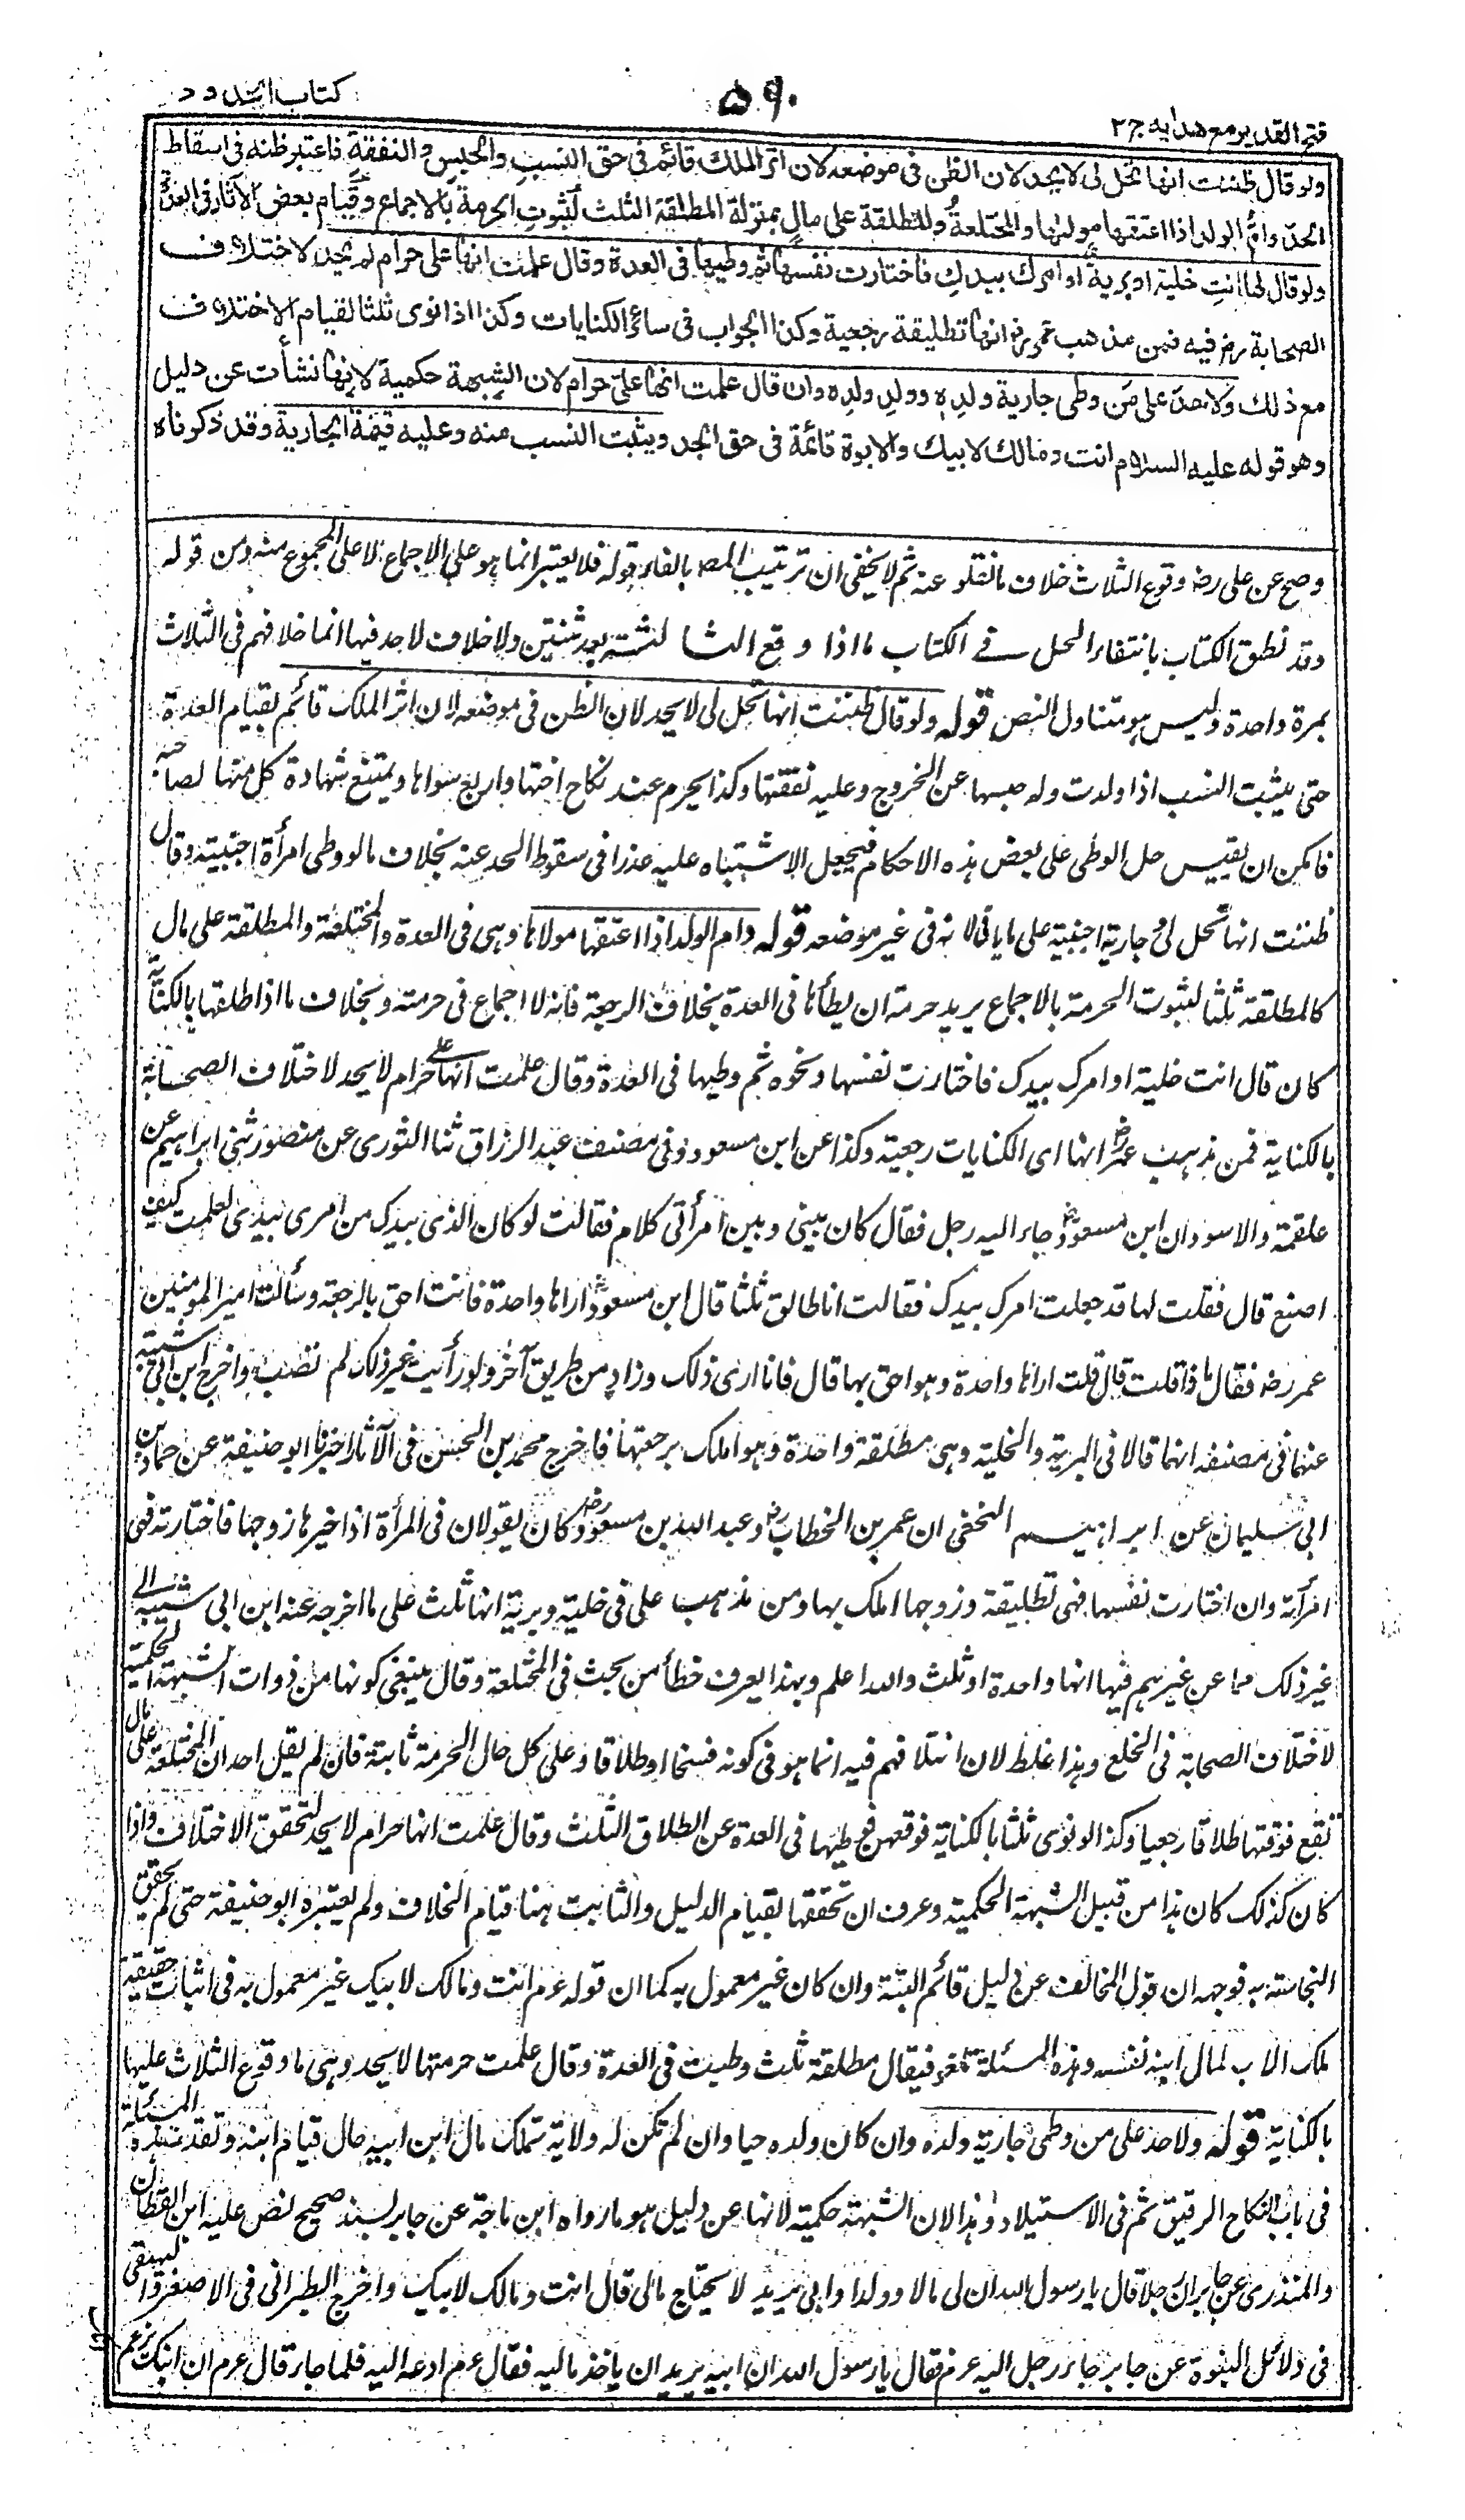 فتح القدير مع هدايه ج٢
٥٩٠
كتاب الحدود
ولو قال ظننت انها تحل لى لا يحد لان الظن فى موضعه لان اثر الملك قائم فى حق النسب والحبس والنفقة فاعتبر ظنه فى اسقاط
الحد وام الولد اذا اعتقها مولىها والمختلعة والمطلقة على مال بمنزلة المطلقة الثلث لثبوت الحرمة بالاجماع وقيام بعض الآثار فى العدة
ولو قال لها انت خلية او برية او امرك بيدك فاختارت نفسها ثم وطيها فى العدة وقال علمت انها على حرام لم يحد لاختلاف
الصحابة رض فيه فمن مذهب عمر رض انها تطليقة رجعية وكذا الجواب فى سائر الكنايات وكذا اذا نوى ثلثا لقيام الاختلاف
مع ذلك ولا حد على من وطى جارية ولده وولد ولده وان قال علمت انها على حرام لان الشبهة حكمية لانها نشأت عن دليل
وهو قوله عليه السلام انت ومالك لابيك والابوة قائمة فى حق الجد ويثبت النسب منه وعليه قيمة الجارية وقد ذكرناه
وصح عن على رض وقوع الثلاث خلاف ما نقلو عنه ثم لا يخفى ان ترتيب المص بالفاء قوله فلا يعتبر انما هو على الاجماع لا على المجموع منه ومن قوله
وقد نطق الكتاب بانتفاء المحل فى الكتاب ما اذا وقع الثا لثة بعد ثنتين ولا خلاف لاحد فيها انما خلافهم فى الثلاث
بمرة واحدة وليس هو متناول النص قوله ولو قال ظننت انها تحل لى لا يحد لان الظن فى موضعه لان اثر الملك قائم بقيام العدة
حتى يثبت النسب اذا ولدت وله حبسها عن الخروج وعليه نفقتها وكذا يحرم عند نكاح اختها واربع سواها ويمتنع شهادة كل منهما لصاحبه
فامكن ان يقيس حل الوطى على بعض هذه الاحكام فيجعل الاشتباه عليه عذرا فى سقوط الحد عنه بخلاف ما لو وطى امرأة اجنبية وقال
ظننت انها تحل لى او جارية اجنبية على ما ياتى لانه فى غير موضعه قوله وام الولد اذا اعتقها مولاها وهى فى العدة والمختلعة والمطلقة على مال
كالمطلقة ثلثا لثبوت الحرمة بالاجماع يريد حرمة ان يطأها فى العدة بخلاف الرجعة فانه لا اجماع فى حرمته وبخلاف ما اذا طلقها بالكناية
كان قال انت خلية او امرك بيدك فاختارت نفسها ونحوه ثم وطيها فى العدة وقال علمت انها على حرام لا يحد لاختلاف الصحابة
بالكناية فمن مذهب عمر رض انها اى الكنايات رجعية وكذا عن ابن مسعود وفى مصنف عبد الرزاق ثنا الثورى عن منصور ثنى ابراهيم عن
علقمة والاسود ان ابن مسعود رض جاء اليه رجل فقال كان بينى وبين امرأتى كلام فقالت لو كان الذى بيدك من امرى بيدى لعلمت كيف
اصنع قال فقلت لها قد جعلت امرك بيدك فقالت انا طالق ثلثا قال ابن مسعود رض اراها واحدة فانت احق بالرجعة وسألت امير المومنين
عمر رض فقال ماذا قلت قال قلت اراها واحدة وهو احق بها قال فانا ارى ذلك وزاد من طريق آخر ولو رأيت غير ذلك لم تصب واخرج ابن ابى شيبة
عنهما فى مصنفه انهما قالا فى البرية والخلية وهى مطلقة واحدة وهو املك برجعتها فاخرج محمد بن الحسن فى الآثار اخبرنا ابو حنيفة عن حماد بن
ابى سليمان عن ابراهيم النخعى ان عمر بن الخطاب رض وعبد الله بن مسعود رض كان يقولان فى المرأة اذا خيرها زوجها فاختارته فهى
امرأته وان اختارت نفسها فهى تطليقة وزوجها املك بها ومن مذهب على فى خلية وبرية انها ثلث على ما اخرجه عنه ابن ابى شيبة الى
غير ذلك مما عن غيرهم فيها انها واحدة او ثلث والله اعلم وبهذا يعرف خطأ من بحث فى المختلعة وقال ينبغى كونها من ذوات الشبهة الحكمية
لاختلاف الصحابة فى الخلع وهذا غلط لان اختلافهم فيه انما هو فى كونه فسخا او طلاقا وعلى كل حال الحرمة ثابتة فان لم يقل احد ان المختلعة على مال
تقع فرقتها طلاقا رجعيا وكذا لو نوى ثلثا بالكناية فوقعن فوطيها فى العدة عن الطلاق الثلث وقال علمت انها حرام لا يحد لتحقق الاختلاف واذا
كان كذلك كان هذا من قبيل الشبهة الحكمية وعرف ان تحققها بقيام الدليل والثابت ههنا قيام الخلاف ولم يعتبره ابو حنيفة حتى لم يحقق
النجاسة به فوجه ان قول المخالف عن دليل قائم البتة وان كان غير معمول به كما ان قوله عم انت ومالك لابيك غير معمول به فى اثبات حقيقة
ملك الاب لمال ابنه نفسه وهذه المسئلة تلغز فيقال مطلقة ثلث وطيت فى العدة وقال علمت حرمتها لا يحد وهى ما وقوع الثلاث عليها
بالكناية قوله ولا حد على من وطى جارية ولده وان كان ولده حيا وان لم تكن له ولاية تملك مال ابن ابنه حال قيام ابنه وتقدمت هذه المسئلة
فى باب النكاح الرقيق ثم فى الاستيلاد وهذا لان الشبهة حكمية لانها عن دليل هو ما رواه ابن ماجة عن جابر بسند صحيح نص عليه ابن القطان
والمنذرى عن جابر ان رجلا قال يا رسول الله ان لى مالا وولدا وابى يريد لا يحتاج مالى قال انت ومالك لابيك واخرج الطبرانى فى الاصغر والبيهقى
فى دلائل النبوة عن جابر جاء رجل اليه عم فقال يا رسول الله ان ابيه يريد ان ياخذ ماليه فقال عم ادعه اليه فلما جاء قال عم ان ابنك يزعم